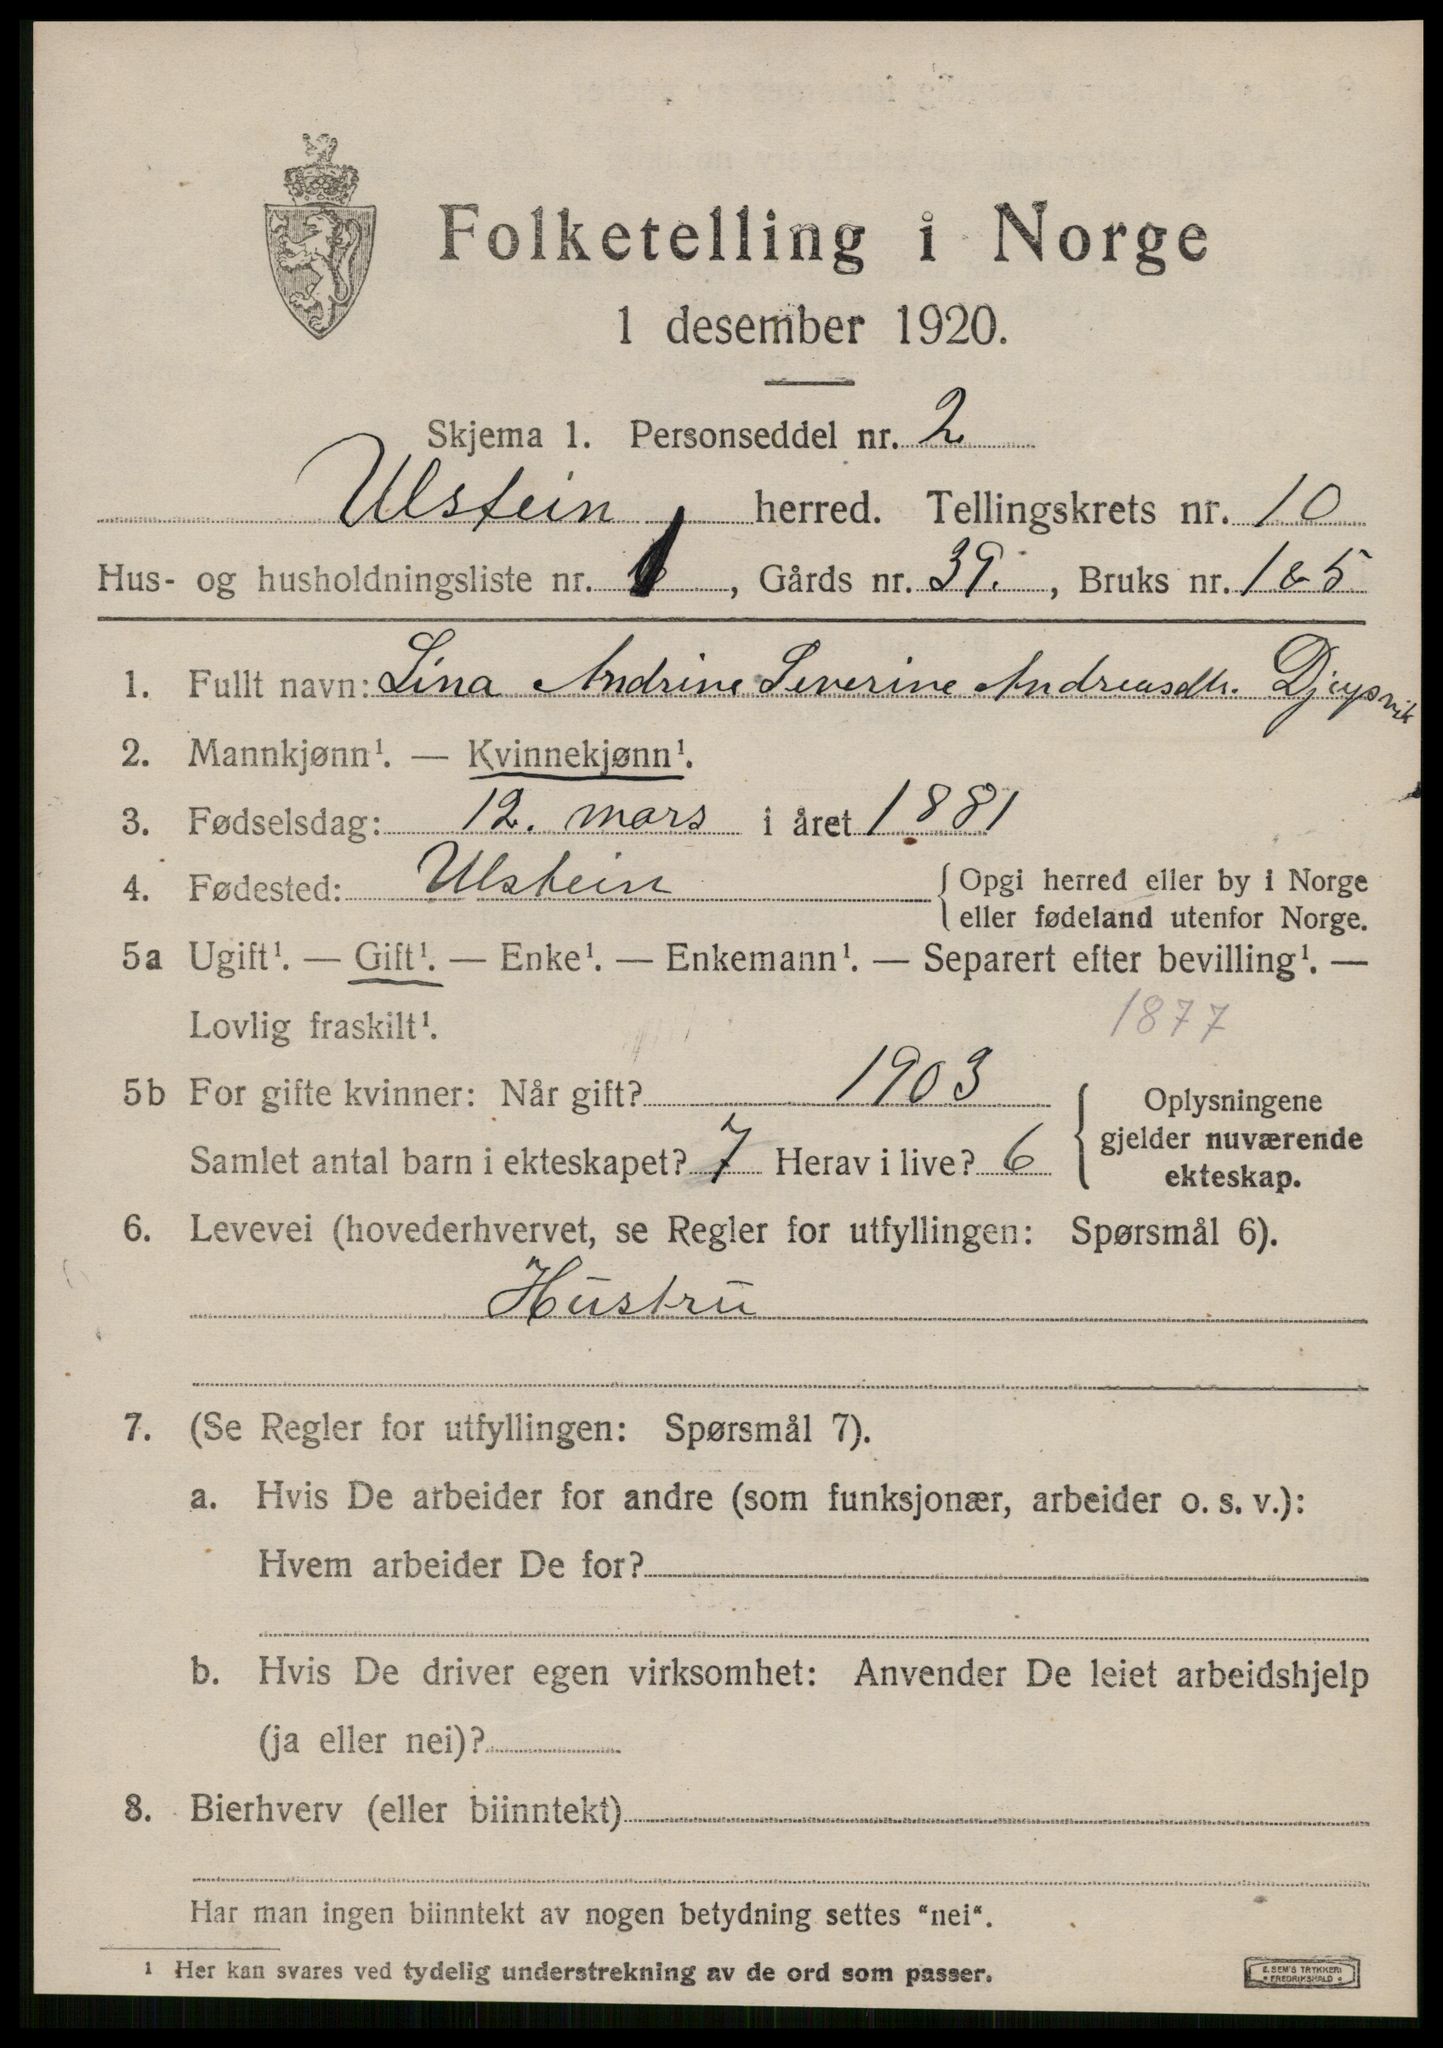 Folketelling i Norge
1 desember 1920.
Skjema 1. Personseddel nr. 2
Ulstein herred. Tellingskrets nr. 10
Hus- og husholdningsliste nr. 1, Gårds nr. 39., Bruks nr. 1 & 5
1. Fullt navn: Lina Andrine Severine Andreasdtr. Djupsvik
2. Mannkjønn¹. — Kvinnekjønn¹.
3. Fødselsdag: 12. mars i året 1881
4. Fødested: Ulstein { Opgi herred eller by i Norge
eller fødeland utenfor Norge.
5a Ugift¹. — Gift¹. — Enke¹. — Enkemann¹. — Separert efter bevilling¹. —
Lovlig fraskilt¹. 1877
5b For gifte kvinner: Når gift? 1903 { Oplysningene
Samlet antal barn i ekteskapet? 7 Herav i live? 6 gjelder nuværende
ekteskap.
6. Levevei (hovederhvervet, se Regler for utfyllingen: Spørsmål 6).
Hustru
7. (Se Regler for utfyllingen: Spørsmål 7).
a. Hvis De arbeider for andre (som funksjonær, arbeider o. s. v.):
Hvem arbeider De for?
b. Hvis De driver egen virksomhet: Anvender De leiet arbeidshjelp
(ja eller nei)?
8. Bierhverv (eller biinntekt)
Har man ingen biinntekt av nogen betydning settes "nei".
¹ Her kan svares ved tydelig understrekning av de ord som passer.
E. SEM'S TRYKKERI
FREDRIKSHALD